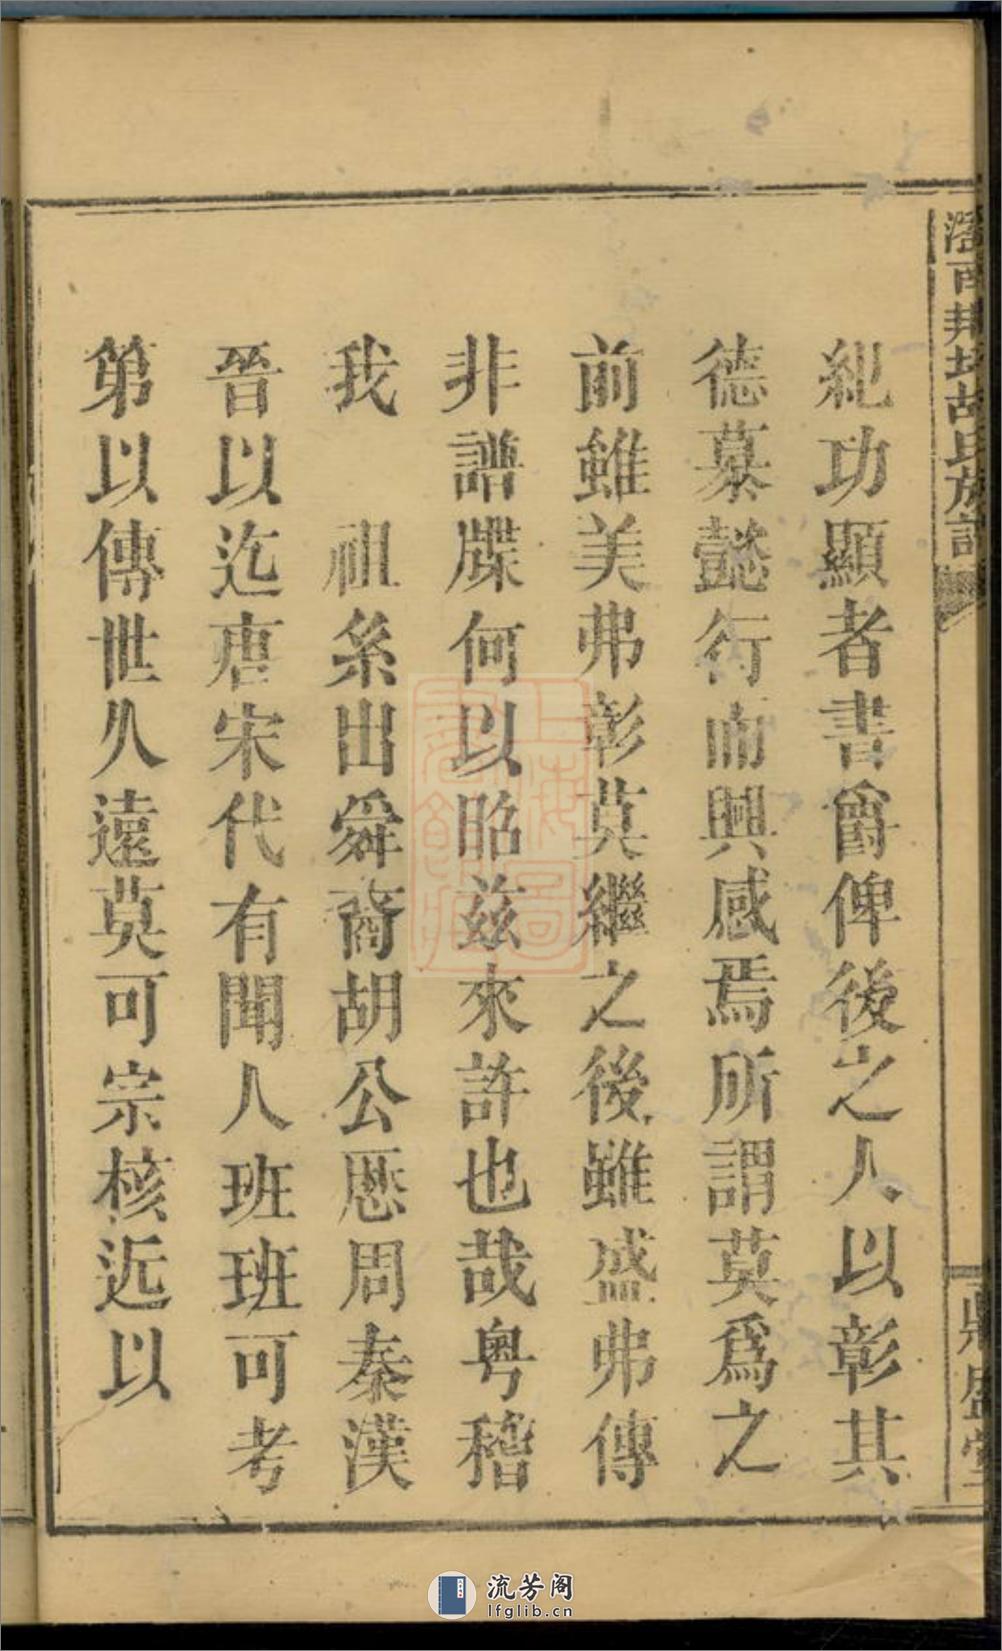 紀功顯者書爵俾後之人以彰其
德慕懿行而興感焉所謂莫爲之
前雖美弗彰莫繼之後雖盛弗傳
非譜牒何以昭茲來許也哉粤稽
我 祖系出舜裔胡公歷周秦漢
晉以迄唐宋代有聞人班班可考
第以傳世久遠莫可宗核近以
胡氏族譜
鼎盛堂
上海圖書館藏
流芳阁
lfglib.cn